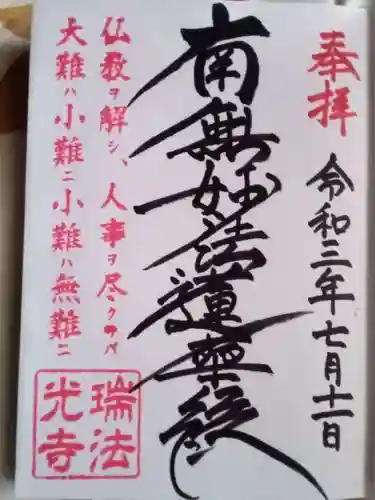 奉拝
令和三年七月十一日
南無妙法蓮華経
仏教ヲ解シ、人事ヲ尽クサバ
大難ハ小難ニ小難ハ無難ニ
瑞法
光寺